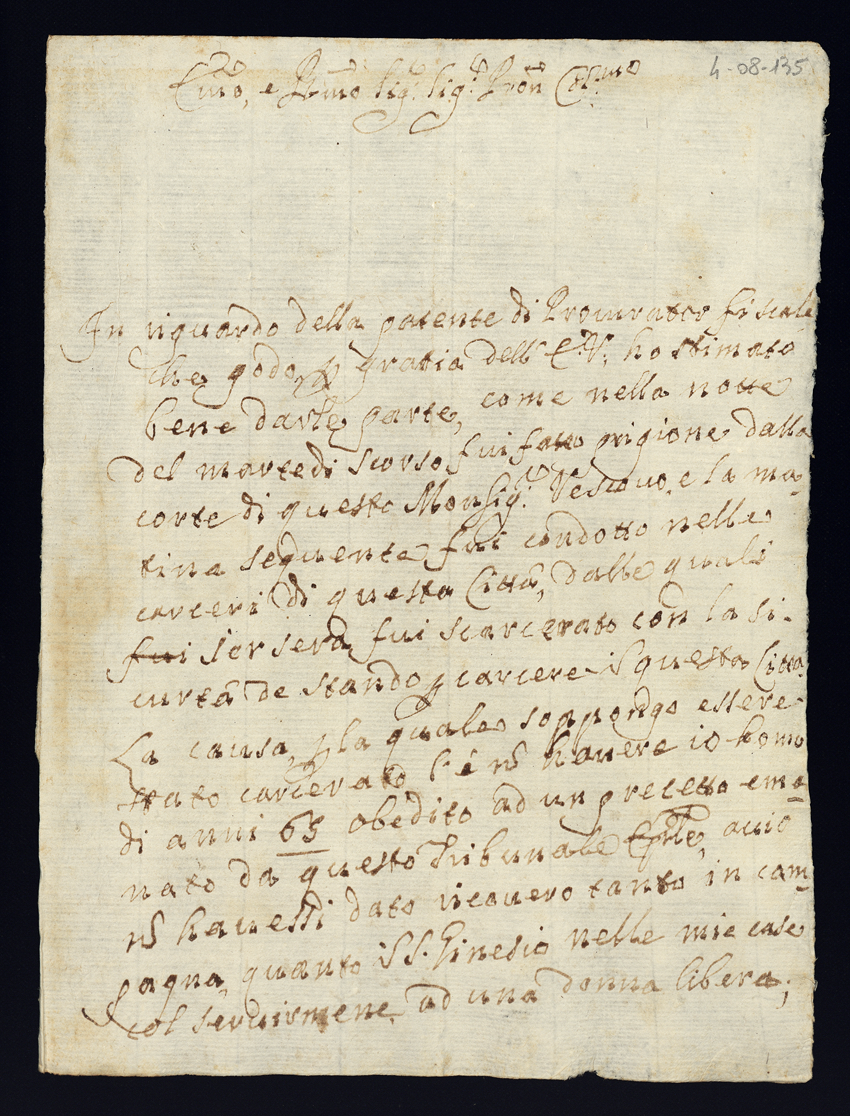 4-08-135
Emo, e Rmo Sig.r Sig.r Pron Col.mo
In riguardo della patente di Procurator fiscale
che godo p gratia dell' E.V. ho stimato
bene darle parte, come nella notte
del martedi scorso fui fatto prigione dalla
corte di questo Monsig.r Vescovo, e la ma-
tina sequente fui condotto nelle
carceri di questa Città, dalle quali
fui iersera fui scarcerato con la si-
curtà de stando p carcere i questa Città
La causa, p la quale soppongo essere
stato carcerato l'è nō havere io homo
di anni 65 obedito ad un precetto ema-
nato da questo Tribunale Eple, acciò
nō havessi dato ricovero tanto in cam-
pagna, quanto i S. Ginesio nelle mie case
col servirmene ad una donna libera;